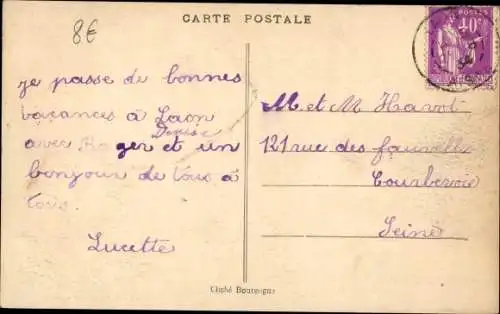 8€
CARTE POSTALE
POSTES
40c
je passe de bonnes
vacances à Laon
Denise
avec Roger et un
bonjour de tous à
tous
Lucette
M et M Havot
121 rue des
Courbevoie
Seine
Cliché Bourgogne